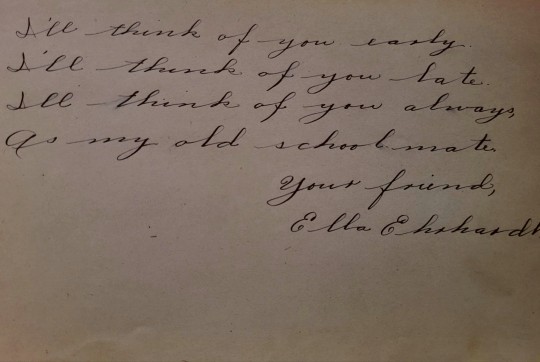 I'll think of you early.
I'll think of you late.
I'll think of you always,
As my old schoolmate.
Your friend,
Ella Ehrhardt